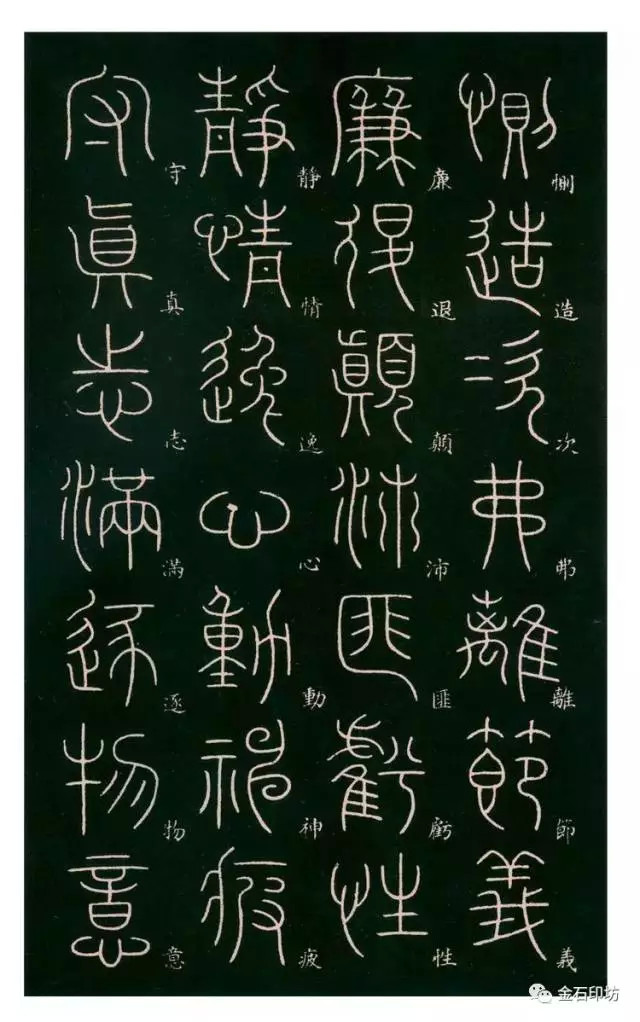 惻造次弗離節義
廉退顛沛匪虧性
靜情逸心動神疲
守真志滿逐物意
金石印坊